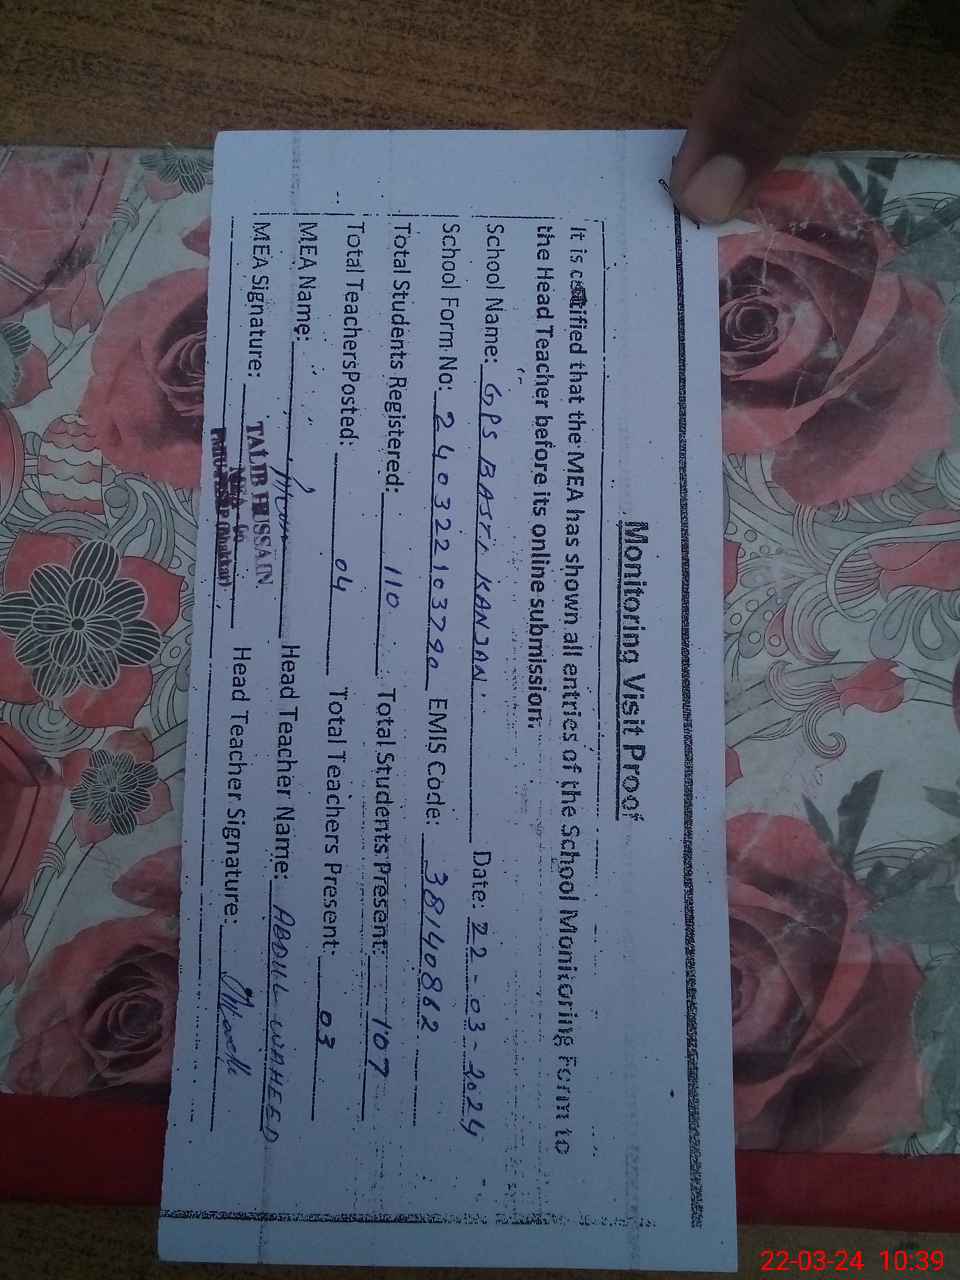 Monitoring Visit Proof
It is certified that the MEA has shown all entries of the School Monitoring Form to
the Head Teacher before its online submission.
School Name: GPS BASTI KANJAN Date: 22-03-2024
School Form No: 240322103790 EMIS Code: 38140862
Total Students Registered: 110 Total Students Present: 107
Total TeachersPosted: 04 Total Teachers Present: 03
MEA Name: Head Teacher Name: ABDUL WAHEED
MEA Signature: TALIB HUSSAIN Head Teacher Signature:
(Bhakkar)
22-03-24 10:39